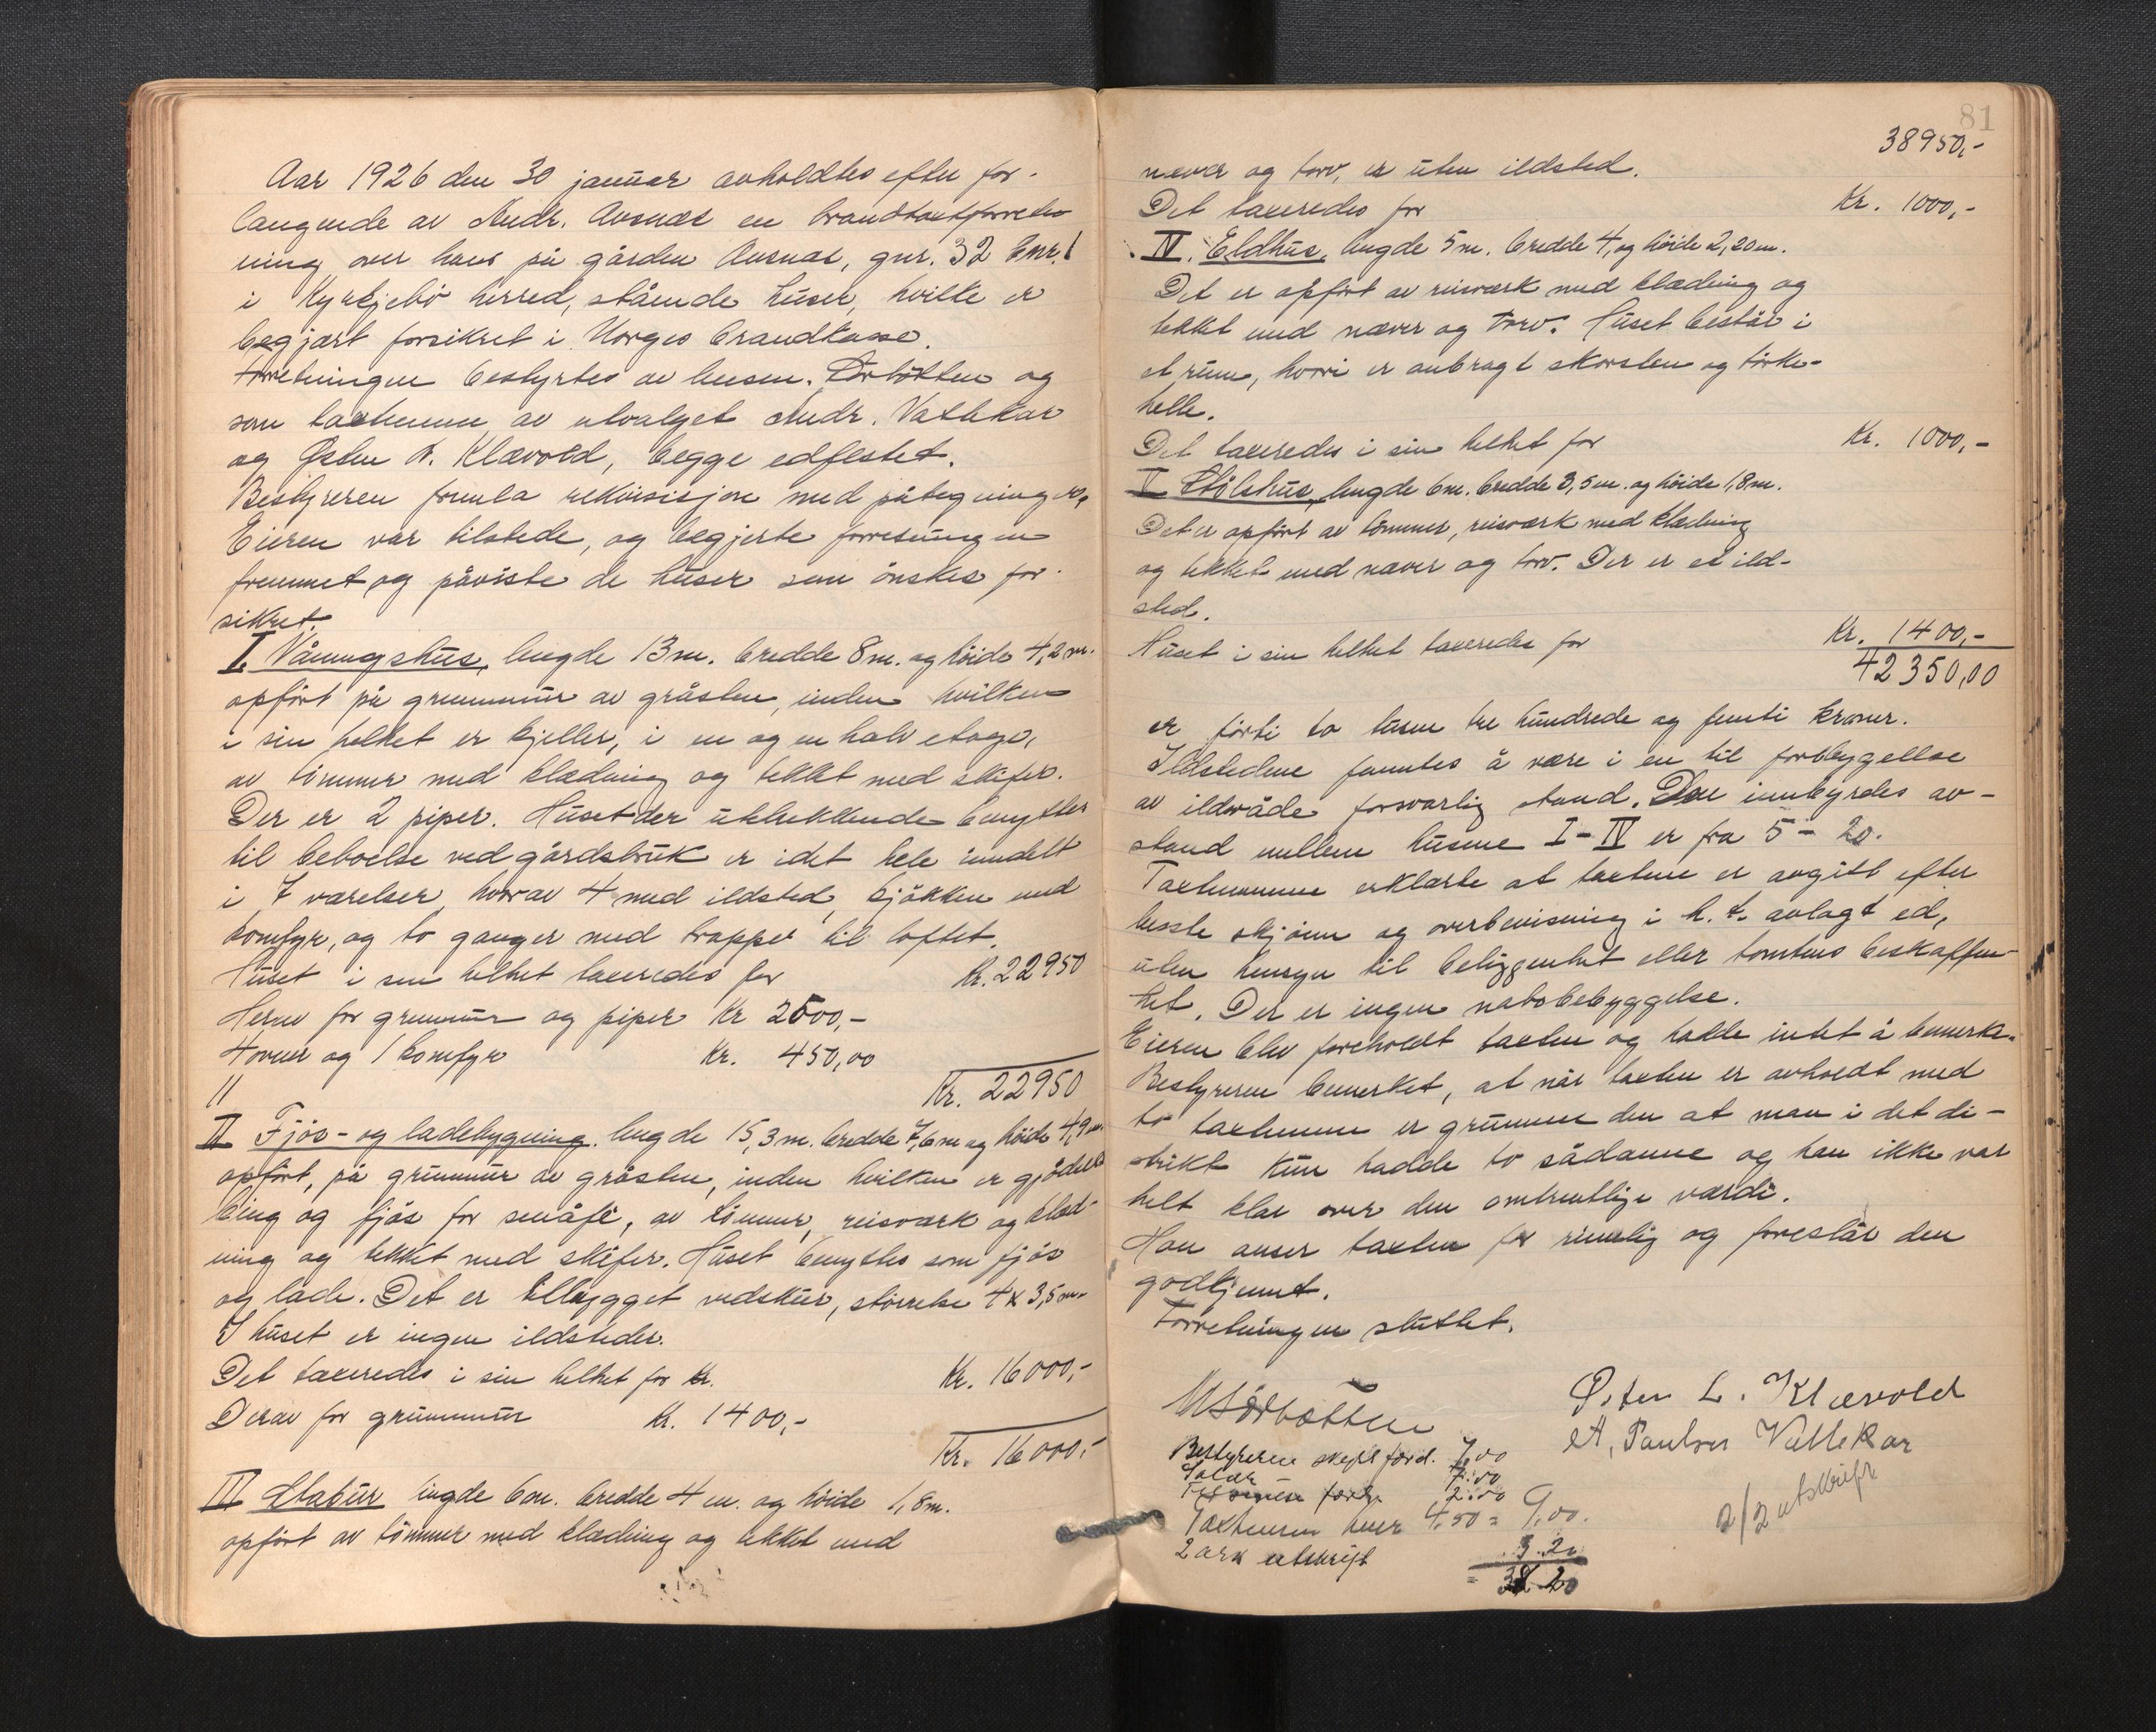 Aar 1926 den 30 januar avholdtes efter for-
langende av Andr. Avsnæs en brandtaxtforret-
ning over hans på gården Avsnæs, gnr. 32 bnr. 1
i Kyrkjebö herred, stående huser, hvilke er
begjært forsikret i Norges brandkasse.
Forretningen bestyrtes av lensm. Förbötten og
som taxtmenn av utvalget Andr. Vattekar
og Östen L. Klævold, begge edfestet.
Bestyreren fremla rekvisisjon med påtegninger.
Eieren var tilstede, og begjerte forretningen
fremmet og påviste de huser som önskes for-
sikret.
I. Våningshus, lengde 13 m. bredde 8 m. og höide 4,2 m.
opfört på grunnmur av gråsten, inden hvilken
i sin helhet er kjeller, i en og en halv etage,
av tömmer med klædning og tekket med skifer.
Der er 2 piper. Huset der utelukkende benyttes
til beboelse ved gårdsbruk er i det hele inndelt
i 7 værelser, hvorav 4 med ildsted, kjökken med
komfyr, og to ganger med trapper til loftet.
Huset i sin helhet taxeredes for Kr. 22950
Herav for grunmur og piper Kr 2500,-
4 ovner og 1 komfyr Kr. 450,00
Kr. 22950
II Fjös- og ladebygning. lengde 15,3 m. bredde 7,6 m og höide 4,9 m.
opfört, på grunmur av gråsten, inden hvilken er gjödsel-
bing og fjös for småfe, av tömmer, reisværk og klæd-
ning og tekket med skifer. Huset benyttes som fjös
og lade. Det er tilbygget vedskur, störrelse 4 x 3,5 m.
I huset er ingen ildsteder.
Det taxeredes i sin helhet for kr. Kr. 16000,-
Derav for grunnmur Kr. 1400,-
Kr. 16000,-
III Stabur lengde 6 m. bredde 4 m. og höide 1,8 m.
opfört av tömmer med klædning og tekket med
81
38950,-
næver og torv, er uten ildsted.
Det taxeredes for Kr. 1000,-
IV. Eldhus, lengde 5 m. bredde 4, og höide 2,20 m.
Det er opfört av reisværk med klædning og
tekket med næver og torv. Huset består i
et rum, hvori er anbragt skorsten og törke-
helle.
Det taxeredes i sin helhet for Kr. 1000,-
V Stölshus, lengde 6 m. bredde 3,5 m. og höide 1,8 m.
Det er opfört av tömmer, reisværk med klædning
og tekket med næver og torv. Der er et ild-
sted.
Huset i sin helhet taxeredes for Kr. 1400,-
42350,00
er förti to tusen tre hundrede og femti kroner.
Ildstedene funntes å være i en til forbbygellse
av ildsvåde forsvarlig stand. Den innbyrdes av-
stand mellem husene I - IV er fra 5 - 20.
Taxtmennene erklærte at taxtene er avgitt efter
beste skjönn og overbevisning i h. t. avlagt ed,
uten hensyn til beliggenhet eller tomtens beskaffen-
het. Der er ingen nabobebyggelse.
Eieren blev foreholdt taxten og hadde intet å bemerke.
Bestyreren bemerket, at når taxten er avholdt med
to taxtmenn er grunnen den at man i det di-
strikt kun hadde to sådanne og han ikke var
helt klar over den omtrentlige værdi.
Han anser taxten for rimelig og foreslår den
godkjennt.
Forretningen sluttet.
Östen L. Klævold
A. Paulsen Vattekar
Bestyreren skyss ford. 7,00
Salær 7.00
2.00
Taxtmenn hver 4,50 = 9,00.
2 ark utskrift 3.20
2/2 utskrift